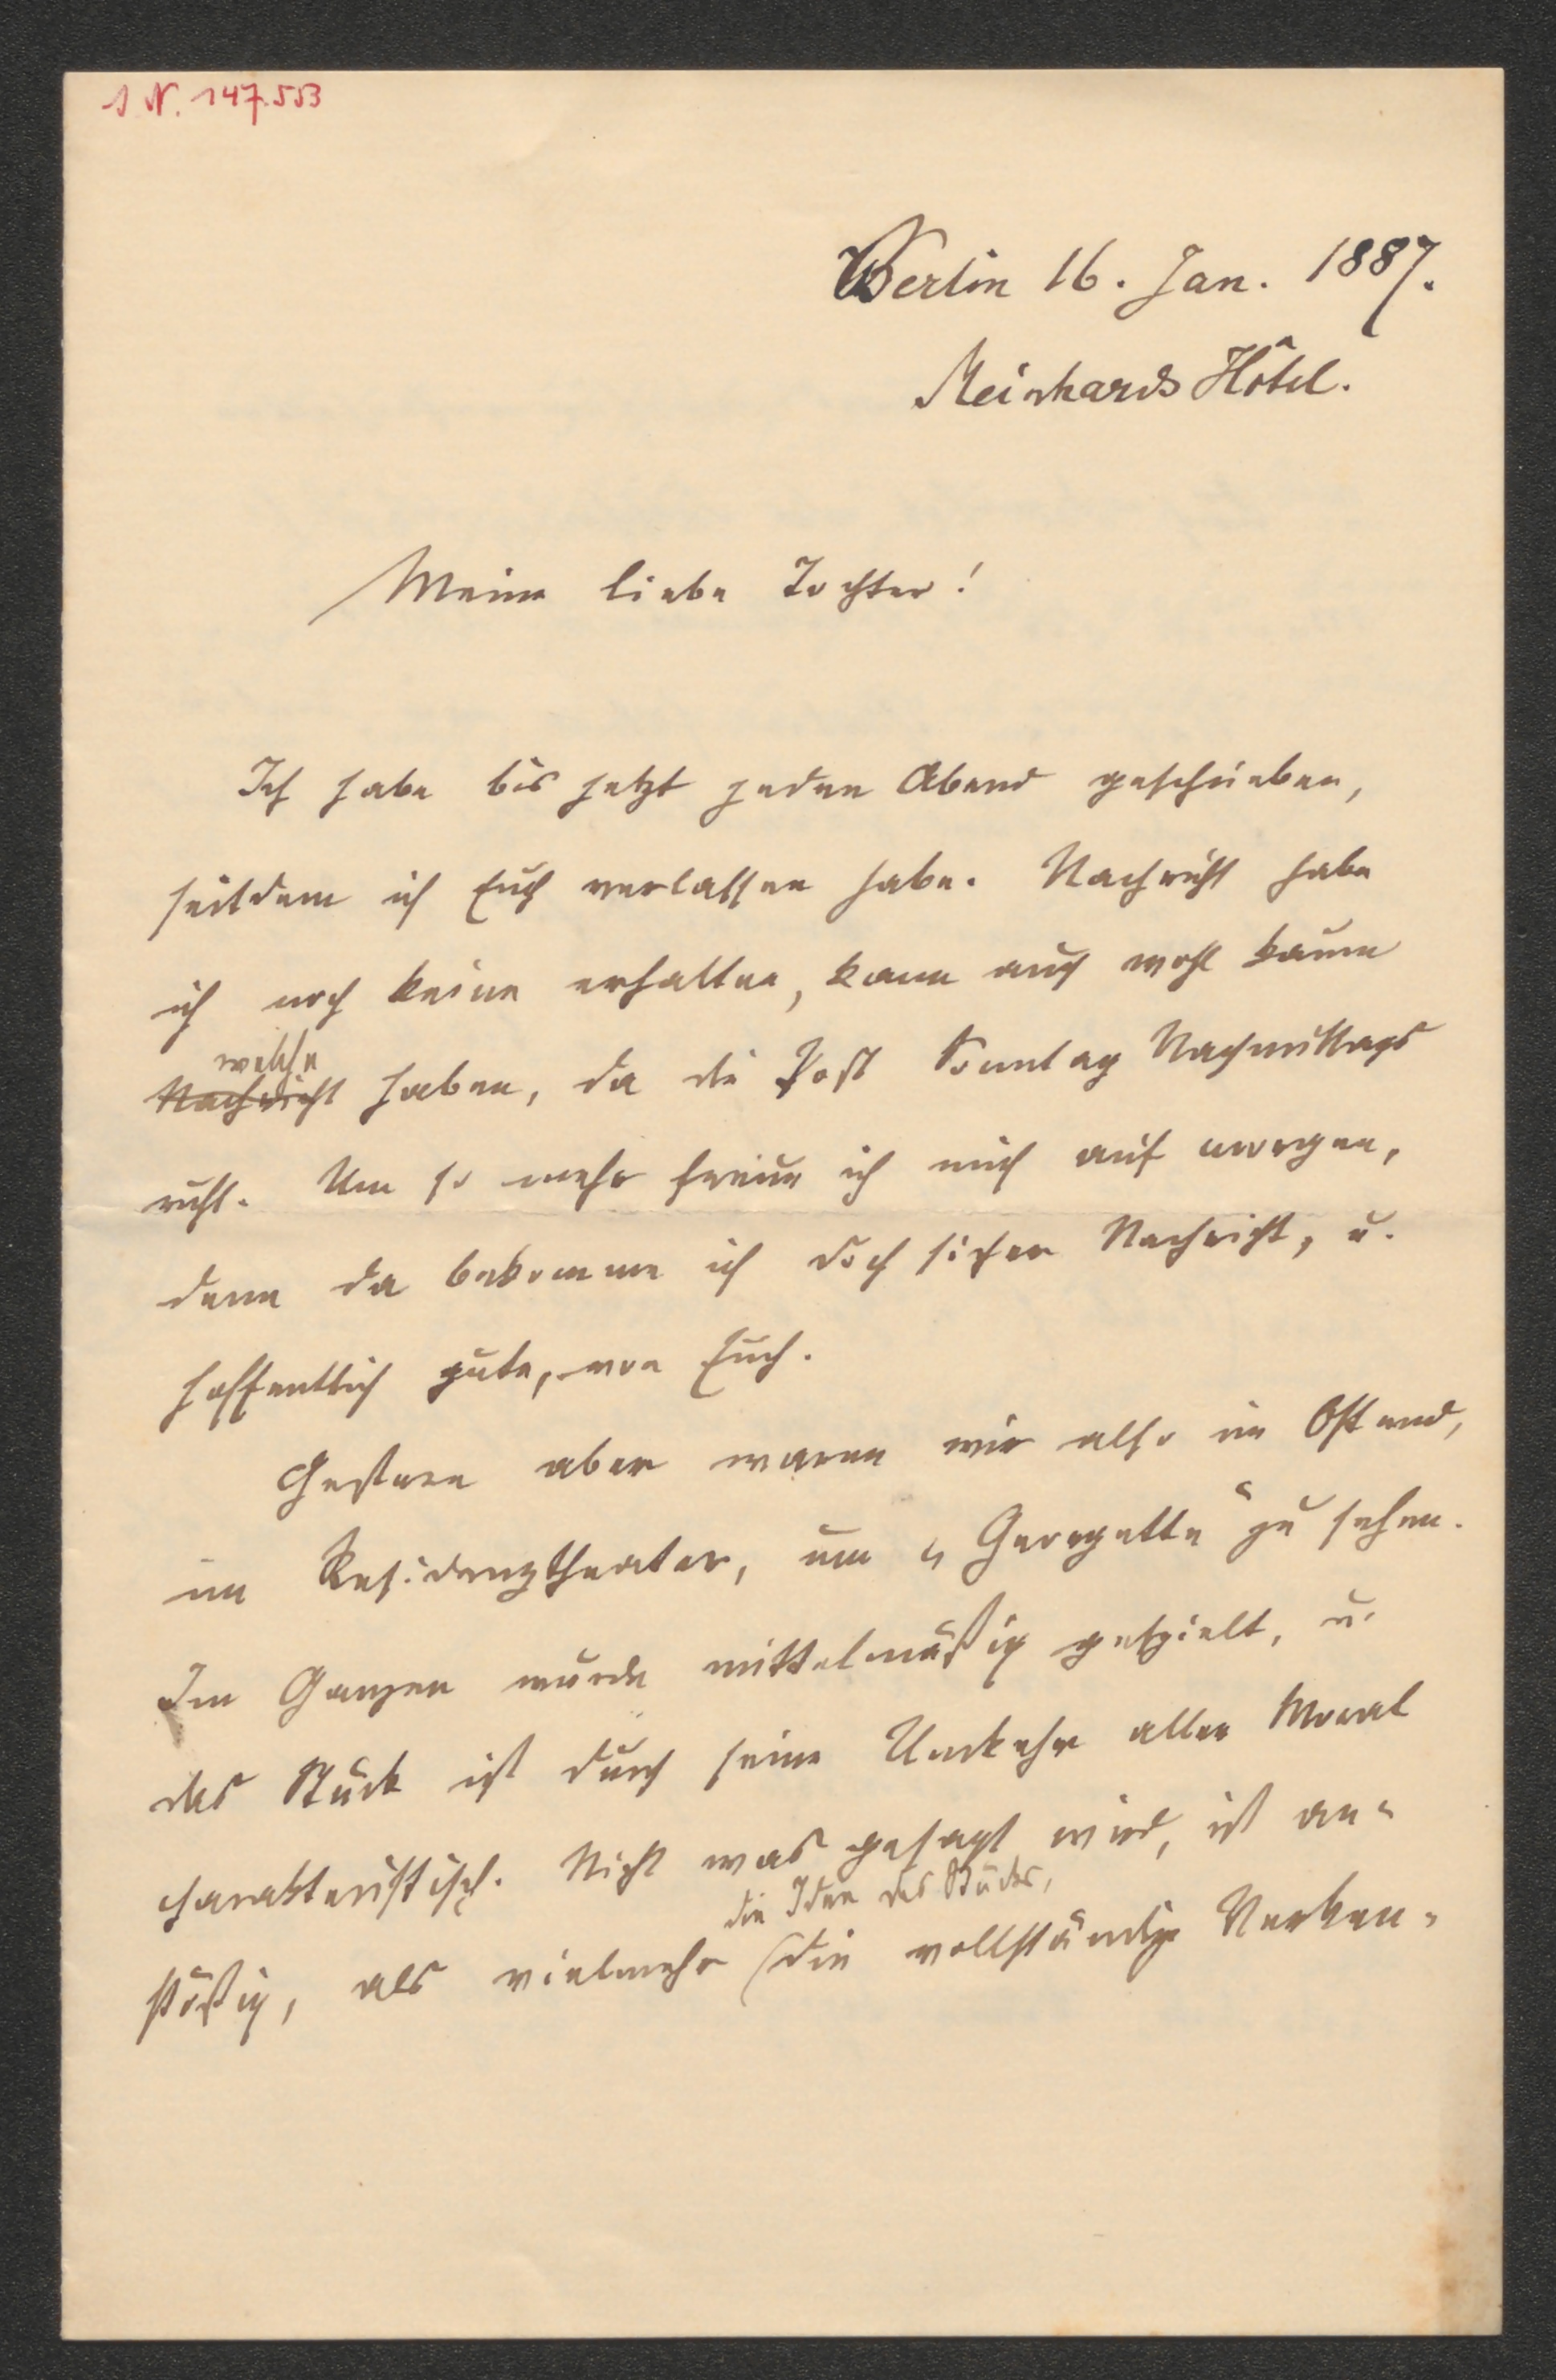 J. N. 147.553
Berlin 16. Jan. 1887.
Meinhards Hôtel.
Meine liebe Tochter!
Ich habe bis jetzt jeden Abend geschrieben,
seitdem ich Euch verlassen habe. Nachricht habe
ich noch keine erhalten, kann auch wohl kaum
welche
Nachricht haben, da die Post Sonntag Nachmittags
ruht. Um so mehr freue ich mich auf morgen,
denn da bekomme ich doch sicher Nachricht, u.
hoffentlich gute, von Euch.
Gestern aber waren wir also im Ostend,
im Residenztheater, um „Georgette“ zu sehen.
Im Ganzen wurde mittelmäßig gespielt, u.
das Stück ist durch seine Umkehr aller Moral
charakteristisch. Nicht was gesagt wird, ist an-
die Idee des Stückes,
stößig, als vielmehr die vollständige Verken-